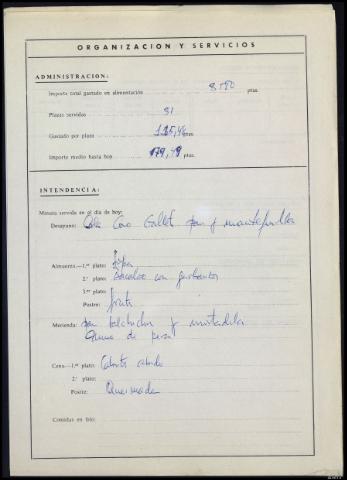 ORGANIZACION Y SERVICIOS
ADMINISTRACION:
Importe total gastado en alimentación ptas.
Plazas servidas 81
Gastado por plaza ptas.
Importe medio hasta hoy ptas.
INTENDENCIA:
Minuta servida en el día de hoy:
Desayuno: Cola Cao Gallet pan y mantequilla
Almuerzo.—1.er plato: Sopa
2.º plato: con garbanzos
3.er plato:
Postre: fruta
Merienda: pan salchichon y mortadela
de pera
Cena.—1.er plato:
2.º plato:
Postre: Queimada
Comidas en frío: